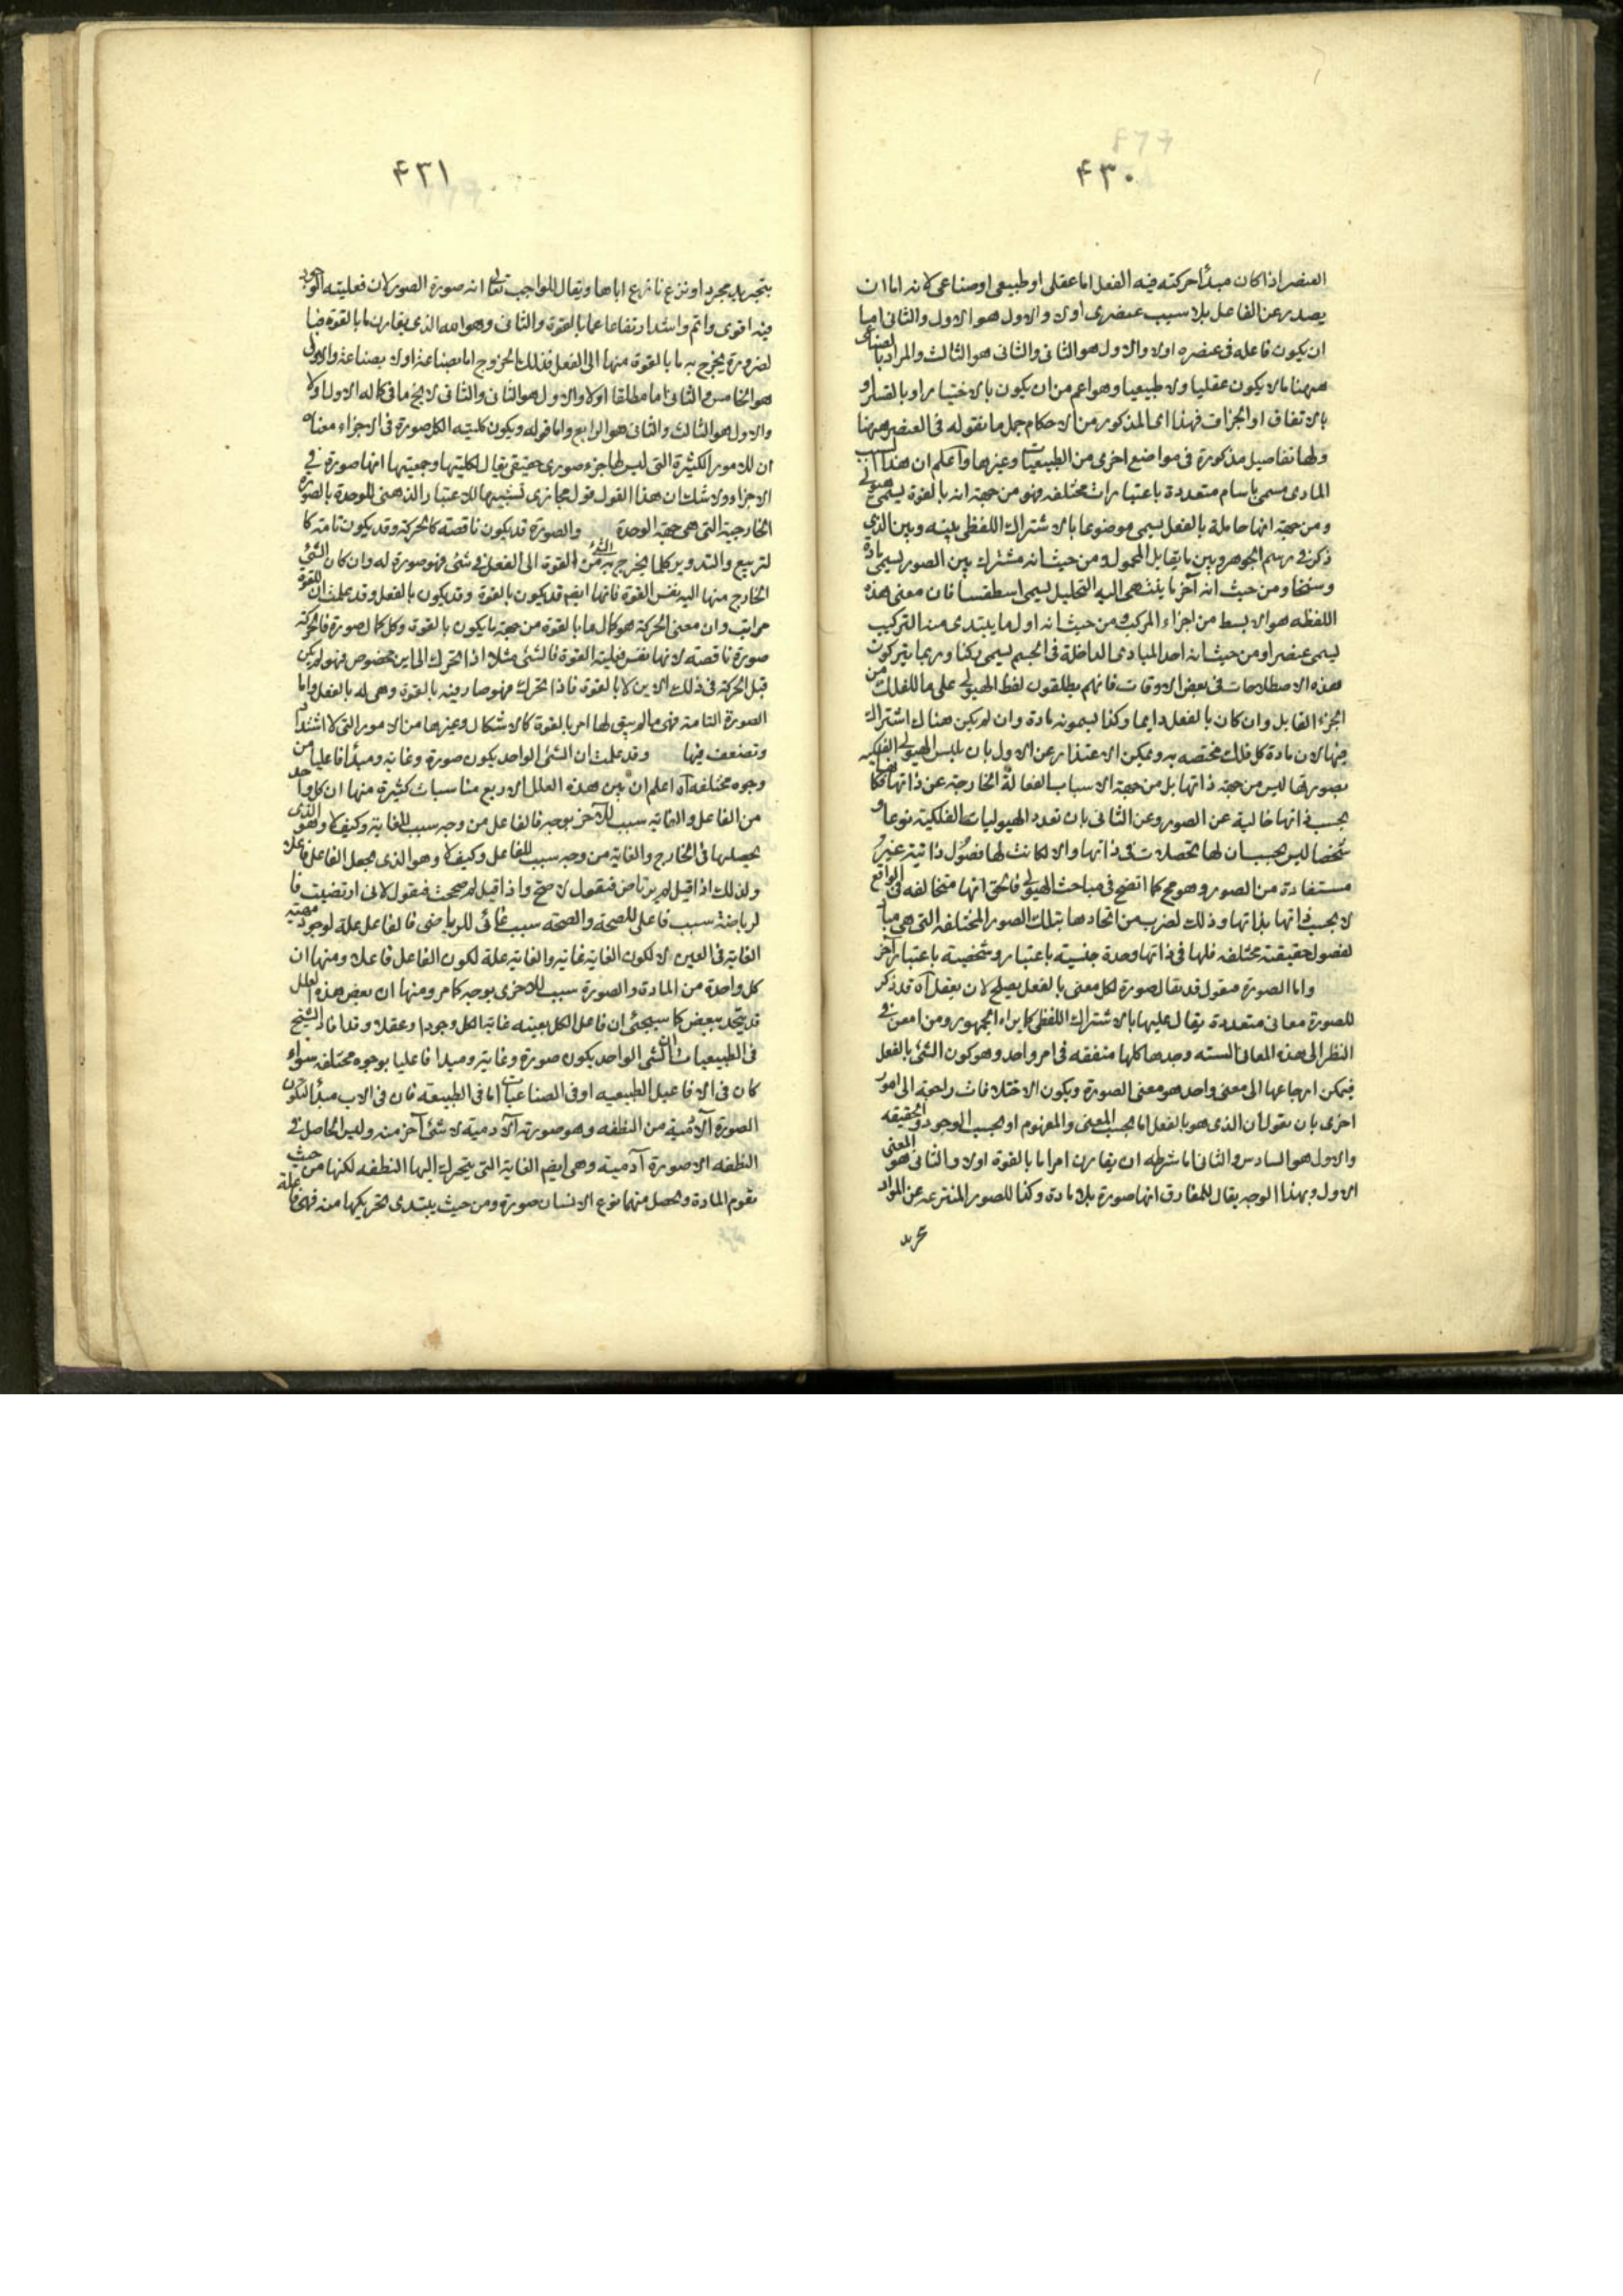 ۴۳۰
العنصر اذا كان مبدأ حركته فيه الفعل اما عقلى او طبيعى او صناعى لانه اما ان
يصدر عن الفاعل بلا سبب عنصرى اولا والاول هو الاول والثانى اما
ان يكون فاعله فى عنصره اولا والاول هو الثانى والثانى هو الثالث والمراد بالصناعى
ههنا ما لا يكون عقليا ولا طبيعيا وهو اعم من ان يكون بالاختيار او بالقسر او
بالاتفاق او الجزاف فهذا اى المذكور من الاحكام جمل ما نقوله فى العنصر ههنا
ولها تفاصيل مذكورة فى مواضع اخرى من الطبيعيات وغيرها واعلم ان هذا السبب
المادى مسمى باسام متعددة باعتبارات مختلفه فهو من جهة انه بالقوة يسمى هيولى
ومن جهة انها حاملة بالفعل يسمى موضوعا بالاشتراك اللفظى بينه وبين الذى
ذكر فى رسم الجوهر وبين ما يقابل المحمول ومن حيث انه مشترك بين الصور يسمى مادة
وسنخا ومن حيث انه آخر ما ينتهى اليه التحليل يسمى اسطقسا فان معنى هذه
اللفظه هو الابسط من اجزاء المركب ومن حيث انه اول ما يبتدى منه التركيب
يسمى عنصرا ومن حيث انه احد المبادى الداخلة فى الجسم يسمى ركنا وربما يتركون
هذه الاصطلاحات فى بعض الاوقات فانهم يطلقون لفظ الهيولى على ما للفلك من
الجزء القابل وان كان بالفعل دايما وكذا يسمونه مادة وان لم يكن هناك اشتراك
فيها لان مادة كل فلك مختصه به ويمكن الاعتذار عن الاول بان تلبس الهيولى الفلكيه
بصورتها ليس من جهة ذاتها بل من جهة الاسباب الفعالة الخارجة عن ذاتها فكانها
بحسب ذاتها خالية عن الصور وعن الثانى بان تعدد الهيوليات الفلكية نوعا و
شخصا ليس بحسب ان لها تحصلات فى ذاتها والا لكانت لها فصول ذاتية غير
مستفادة من الصور وهو مح كما اتضح فى مباحث الهيولى فالحق انها متخالفه فى الواقع
لا بحسب ذاتها بذاتها وذلك لضرب من اتحادها بتلك الصور المختلفه التى هى مبا
لفصول حقيقته مختلفه فلها فى ذاتها وحدة جنسية باعتبار وشخصية باعتبار آخر
واما الصورة فنقول قد يقال صورة لكل معنى بالفعل يصلح لان يعقل آه قد ذكر
للصورة معانى متعددة يقال عليها بالاشتراك اللفظى كما يراه الجمهور ومن امعن فى
النظر الى هذه المعانى السته وجدها كلها متفقه فى امر واحد وهو كون الشئ بالفعل
فيمكن ارجاعها الى معنى واحد هو معنى الصورة ويكون الاختلافات راجعة الى امور
اخرى بان نقول ان الذى هو بالفعل اما بحسب المعنى والمفهوم او بحسب الوجود والحقيقه
والاول هو السادس والثانى اما شرطه ان يقارن امرا ما بالقوة اولا والثانى هو المعنى
الاول وبهذا الوجه يقال للمفارق انها صورة بلا مادة وكذا للصور المنتزعه عن المواد
۴۳۱
بتجريد مجرد او نزع نازع اياها ويقال للواجب تعالى انه صورة الصور لان فعليته الوجود
فيه اقوى واتم واشد ارتفاعا عما بالقوة والثانى وهو الذى يقارن ما بالقوة فبا
لضرورة يخرج به ما بالقوة منها الى الفعل فذلك الخروج اما بصناعة اولا بصناعة والاولى
هو الخامس والثانى اما مطلقا اولا والاول هو الثانى والثانى لا يخ ما فى كماله الاول اولا
والاول هو الثالث والثانى هو الرابع واما قوله ويكون كلية الكل صورة فى الاجزاء معناه
ان للامور الكثيرة التى ليس لها جزء صورى حقيقى يقال لكليتها وجمعيتها انها صورة فى
الاجزاء ولا شك ان هذا القول قول مجازى تشبيها للاعتبار الذهنى للوحدة بالصورة
الخارجية التى هى جهة الوحدة والصورة قد يكون ناقصة كالحركة وقد يكون تامة كا
لتربيع والتدوير كلما يخرج به الشئ من القوة الى الفعل فى شئ فهو صورة له وان كان الشئ
الخارج منها اليه نفس القوة فانها ايضا قد يكون بالقوة وقد يكون بالفعل وقد علمت ان للقوة
مراتب وان معنى الحركة هو كمال ما بالقوة من جهة ما يكون بالقوة وكل كمال صورة فالحركة
صورة ناقصة لانها نفس فعلية القوة فالشئ مثلا اذا تحرك الى اين مخصوص فهو لم يكن
قبل الحركة فى ذلك الاين لا بالقوة فاذا تحرك فهو صار فيه بالقوة وهى له بالفعل واما
الصورة التامة فهى ما لم يبق لها امر بالقوة كالاشكال وغيرها من الامور التى لا اشتداد
وتضعف فيها وقد علمت ان الشئ الواحد يكون صورة وغاية ومبدأ فاعليا من
وجوه مختلفه آه اعلم ان بين هذه العلل الاربع مناسبات كثيرة منها ان كل واحد
من الفاعل والغايه سبب للآخر بوجه فالفاعل من وجه سبب للغاية وكيف لا وهو الذى
يحصلها فى الخارج والغاية من وجه سبب للفاعل وكيف لا وهو الذى يجعل الفاعل فاعلا
ولذلك اذا قيل لم يرتاض فيقول لا صح واذا قيل لم صححت فيقول لانى ارتضيت فا
لرياضة سبب فاعلى للصحة والصحة سبب غائى للرياضى فالفاعل علة لوجود مهية
الغاية فى العين لا لكون الغاية غاية والغاية علة لكون الفاعل فاعلا ومنها ان
كل واحدة من المادة والصورة سبب للاخرى بوجه كما مر ومنها ان بعض هذه العلل
قد يتحد ببعض كما سيجئ ان فاعل الكل بعينه غاية الكل وجودا وعقلا وقد افاد الشيخ
فى الطبيعيات ان الشئ الواحد يكون صورة وغاية ومبدا فاعليا بوجوه مختلفه سواء
كان فى الافاعيل الطبيعيه او فى الصناعيات اما فى الطبيعة فان فى الاب مبدأ لتكون
الصورة الآدمية من النطفه وهو صورته الآدمية لا شئ آخر منه وليس الحاصل فى
النطفه الا صورة آدمية وهى ايضا الغاية التى يتحرك اليها النطفه لكنها من حيث
تقوم المادة ويحصل منهما نوع الانسان صورة ومن حيث يبتدى تحريكها منه فهى فاعلة